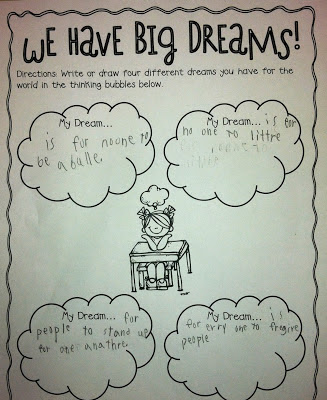 WE HAVE BIG DREAMS!
Directions: Write or draw four different dreams you have for the
world in the thinking bubbles below.
My Dream...
is for noone to
be a bulle
My Dream... is for
no one to littre
My Dream... for
people to stand up
for one anathre
My Dream... is
for erry one to fregive
people